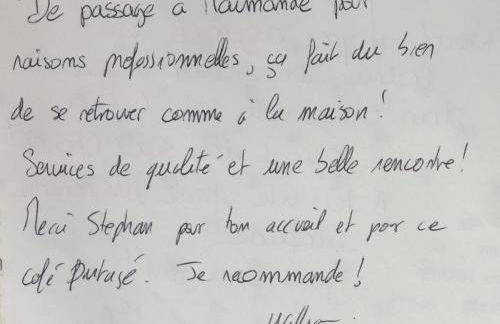 De passage à Marmande pour
raisons professionnelles, ça fait du bien
de se retrouver comme à la maison !
Services de qualité et une belle rencontre !
Merci Stephan pour ton accueil et pour ce
café partagé. Je recommande !